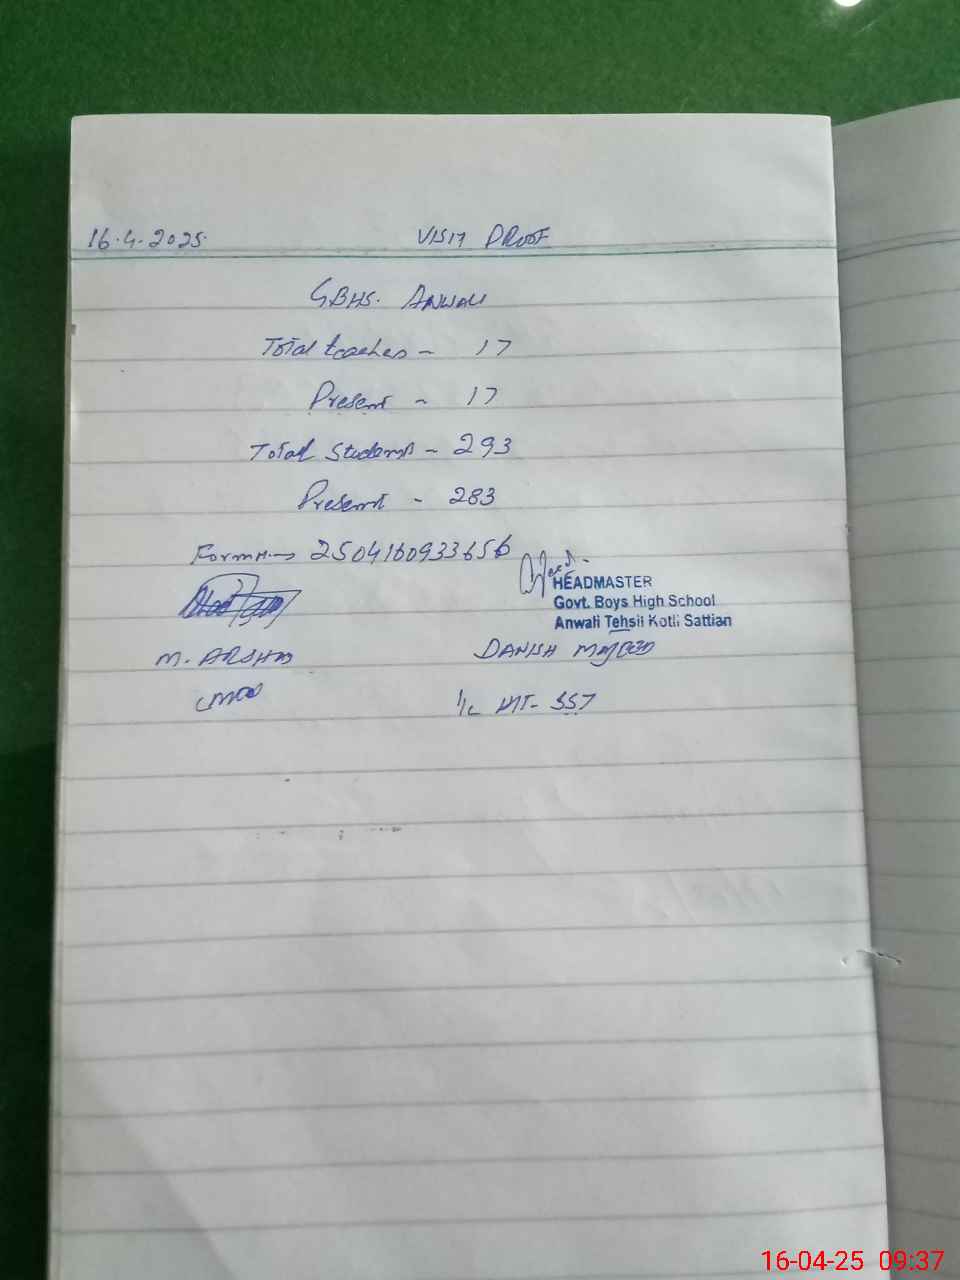 16.4.2025 VISIT PROOF
GBHS. ANWALI
Total teachers - 17
Present - 17
Total Students - 293
Present - 283
Form #- 2504160933656
HEADMASTER
Govt. Boys High School
Anwali Tehsil Kotli Sattian
M. ARSHAD DANISH MAJEED
I/C HT- SST
16-04-25 09:37